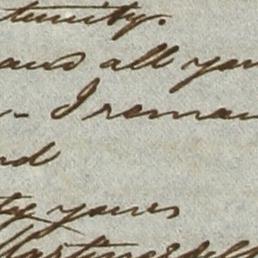 tunity.
and all your
- I remain
nd
ty yours